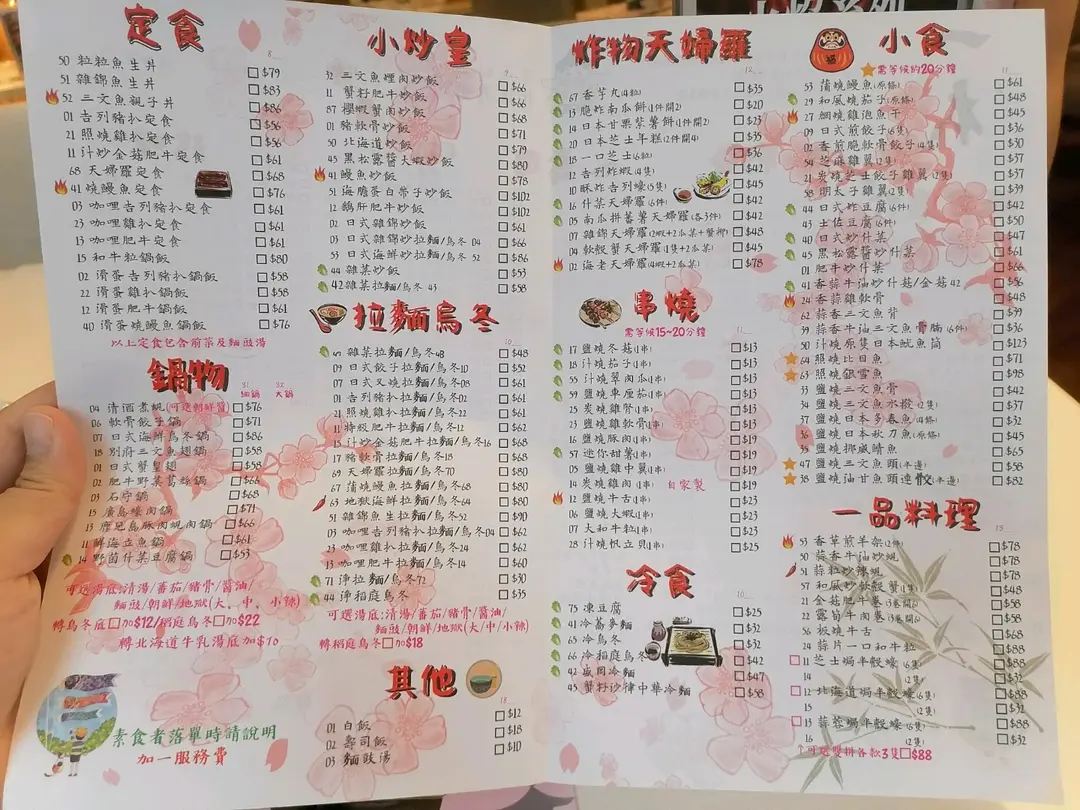 定食
50 粒粒魚生丼 $79
51 雜錦魚生丼 $83
52 三文魚親子丼 $86
01 吉列豬扒定食 $56
21 照燒雞扒定食 $56
11 汁炒金菇肥牛定食 $61
68 天婦羅定食 $68
41 燒鰻魚定食 $76
03 咖哩吉列豬扒定食 $61
23 咖哩雞扒定食 $61
13 咖哩肥牛定食 $61
15 和牛粒鍋飯 $80
02 滑蛋吉列豬扒鍋飯 $58
22 滑蛋雞扒鍋飯 $58
12 滑蛋肥牛鍋飯 $58
40 滑蛋燒鰻魚鍋飯 $76
以上定食包含前菜及麵豉湯
鍋物
細鍋 大鍋
04 清酒煮蜆(可選朝鮮醬) $76
06 軟骨餃子鍋 $71
07 日式海鮮烏冬鍋 $86
18 別府三文魚翅鍋 $58
01 日式蟹皇翅 $58
02 肥牛野菜葛絲鍋 $66
03 石狩鍋 $68
15 廣島蠔肉鍋 $71
13 鹿兒島豚肉蜆肉鍋 $66
11 鮮海立魚鍋 $61
14 野菌什菜豆腐鍋 $53
可選湯底:清湯/蕃茄/豬骨/醬油/
麵豉/朝鮮/地獄(大、中、小辣)
轉烏冬底加$12/稻庭烏冬加$22
轉北海道牛乳湯底加$10
素食者落單時請說明
加一服務費
小炒皇
32 三文魚煙肉炒飯 $66
11 蟹籽肥牛炒飯 $66
87 櫻蝦蟹肉炒飯 $68
01 豬軟骨炒飯 $71
50 北海道炒飯 $79
45 黑松露醬大蝦炒飯 $80
41 鰻魚炒飯 $78
51 海膽蛋白帶子炒飯 $102
12 鵝肝肥牛炒飯 $102
02 日式雜錦炒飯 $61
03 日式雜錦炒拉麵/烏冬 04 $66
53 日式海鮮炒拉麵/烏冬 52 $86
44 雜菜炒飯 $53
42 雜菜炒拉麵/烏冬 43 $58
拉麵烏冬
47 雜菜拉麵/烏冬48 $48
09 日式餃子拉麵/烏冬10 $52
07 日式叉燒拉麵/烏冬08 $61
01 吉列豬扒拉麵/烏冬02 $61
21 照燒雞扒拉麵/烏冬22 $61
11 特級肥牛拉麵/烏冬12 $62
15 汁炒金菇肥牛拉麵/烏冬16 $68
17 豬軟骨拉麵/烏冬18 $68
69 天婦羅拉麵/烏冬70 $80
67 蒲燒鰻魚拉麵/烏冬68 $80
63 地獄海鮮拉麵/烏冬64 $80
51 雜錦魚生拉麵/烏冬52 $90
03 咖哩吉列豬扒拉麵/烏冬04 $62
23 咖哩雞扒拉麵/烏冬24 $62
13 咖哩肥牛拉麵/烏冬14 $60
71 淨拉麵/烏冬72 $30
44 淨稻庭烏冬 $35
可選湯底:清湯/蕃茄/豬骨/醬油/
麵豉/朝鮮/地獄(大/中/小辣)
轉稻庭烏冬加$18
其他
01 白飯 $12
02 壽司飯 $18
03 麵豉湯 $10
炸物天婦羅
67 香芋丸(4粒) $35
13 脆炸南瓜餅(1件開2) $20
14 日本甘栗紫薯餅(1件開2) $23
20 日本芝士年糕(2件開4) $35
18 一口芝士(6粒) $36
12 吉列炸蝦(4隻) $42
10 酥炸吉列蠔(5隻) $45
16 什菜天婦羅(6件) $42
05 南瓜拼蕃薯天婦羅(各3件) $42
07 雜錦天婦羅(2蝦+2瓜菜+蟹柳) $48
04 軟殼蟹天婦羅(1隻+2瓜菜) $45
02 海老天婦羅(4蝦+2瓜菜) $78
串燒
需等候15~20分鐘
17 鹽燒冬菇(1串) $13
18 汁燒茄子(1串) $13
55 汁燒翠肉瓜(1串) $13
59 鹽燒車厘茄(1串) $13
25 炭燒雞腎(1串) $15
23 鹽燒雞軟骨(1串) $15
16 鹽燒豚肉(1串) $19
57 迷你甜薯(1串) $19
05 鹽燒雞中翼(1串) $19
14 炭燒雞肉(1串)自家製 $19
12 鹽燒牛舌(1串) $23
06 鹽燒大蝦(1串) $23
07 大和牛粒(1串) $23
28 汁燒帆立貝(1串) $25
冷食
75 凍豆腐 $25
41 冷蕎麥麵 $32
65 冷烏冬 $32
66 冷稻庭烏冬 $42
42 盛岡冷麵 $47
45 蟹籽沙律中華冷麵 $58
小食
需等候約20分鐘
53 蒲燒鰻魚(原條) $61
29 和風燒茄子(原條) $48
27 網燒雞泡魚干 $45
09 日式煎餃子(6隻) $36
02 香煎脆軟骨餃子(4隻) $30
54 芝麻雞翼(2隻) $31
21 炭燒芝士餃子雞翼(2隻) $37
58 明太子雞翼(2隻) $39
44 日式炸豆腐(6件) $42
43 土佐豆腐(6件) $50
40 日式炒什菜 $47
45 黑松露醬炒什菜 $61
01 肥牛炒什菜 $66
41 香蒜牛油炒什菇/金菇 42 $56
24 香蒜雞軟骨 $48
62 蒜香三文魚背 $39
39 蒜香牛油三文魚骨腩(6件) $36
50 汁燒原隻日本魷魚筒 $123
64 照燒比目魚 $71
63 照燒銀雪魚 $98
33 鹽燒三文魚骨 $42
34 鹽燒三文魚水椒(2隻) $37
37 鹽燒日本多春魚(4條) $32
36 鹽燒日本秋刀魚(原條) $45
35 鹽燒挪威鯖魚 $65
47 鹽燒三文魚頭(半邊) $58
38 鹽燒油甘魚頭連鮫(半邊) $82
一品料理
53 香草煎羊架(2件) $78
50 蒜香牛油炒蜆 $78
51 蒜粒炒辣蜆 $78
57 和風炒軟殼蟹(1隻) $48
21 金菇肥牛卷(3卷開6) $58
22 露筍牛肉卷(3卷開6) $58
56 板燒牛舌 $68
24 蒜片一口和牛粒 $88
11 芝士焗半殼蠔(6隻) $88
14 (2隻) $32
12 北海道焗半殼蠔(6隻) $88
15 (2隻) $32
13 蒜蓉焗半殼蠔(6隻) $88
16 (2隻) $32
↑可選雙拼各款3隻$88